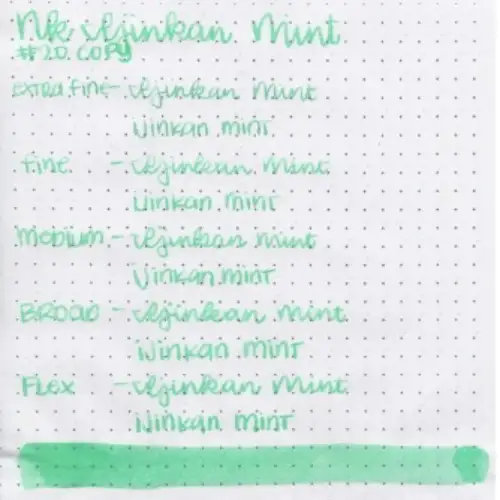 NK Ijinkan Mint
#F20. COPY
EXTRA FINE - Ijinkan Mint
IJINKAN MINT
FINE - Ijinkan Mint
IJINKAN MINT
MEDIUM - Ijinkan Mint
IJINKAN MINT
BROAD - Ijinkan Mint
IJINKAN MINT
FLEX - Ijinkan Mint
IJINKAN MINT